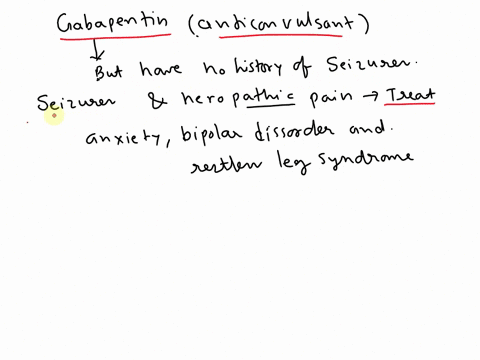 Gabapentin (anticonvulsant)
But have no history of Seizurer.
Seizurer & neropathic pain → Treat
anxiety, bipolar dissorder and.
restlen leg syndrome